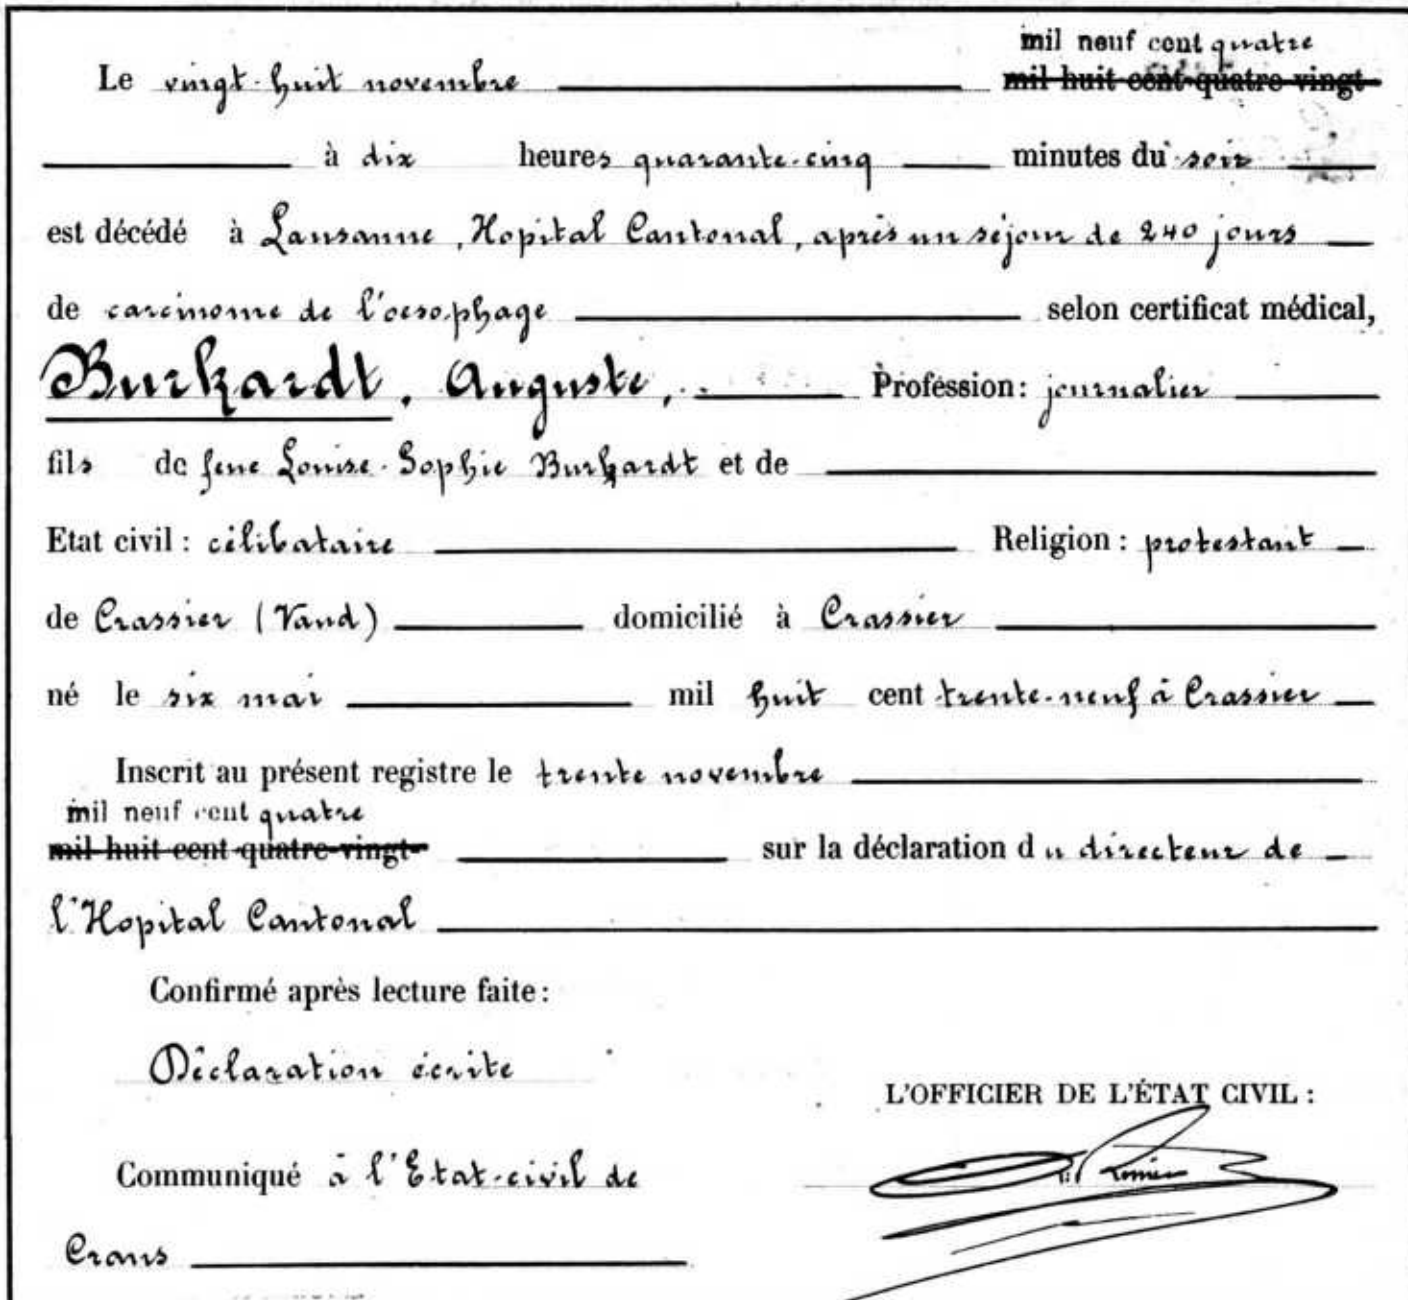 mil neuf cent quatre
Le vingt-huit novembre mil huit cent quatre-vingt-
à dix heures quarante-cinq minutes du soir
est décédé à Lausanne, Hopital Cantonal, après un séjour de 240 jours
de carcinome de l'oesophage selon certificat médical,
Burkardt, Auguste, Profession: journalier
fils de feue Louise-Sophie Burkardt et de
Etat civil: célibataire Religion: protestant
de Crassier (Vaud) domicilié à Crassier
né le six mai mil huit cent trente-neuf à Crassier
Inscrit au présent registre le trente novembre
mil neuf cent quatre
mil huit cent quatre-vingt- sur la déclaration du directeur de
l'Hopital Cantonal
Confirmé après lecture faite:
Déclaration écrite
L'OFFICIER DE L'ÉTAT CIVIL:
Communiqué à l'Etat-civil de
Crans